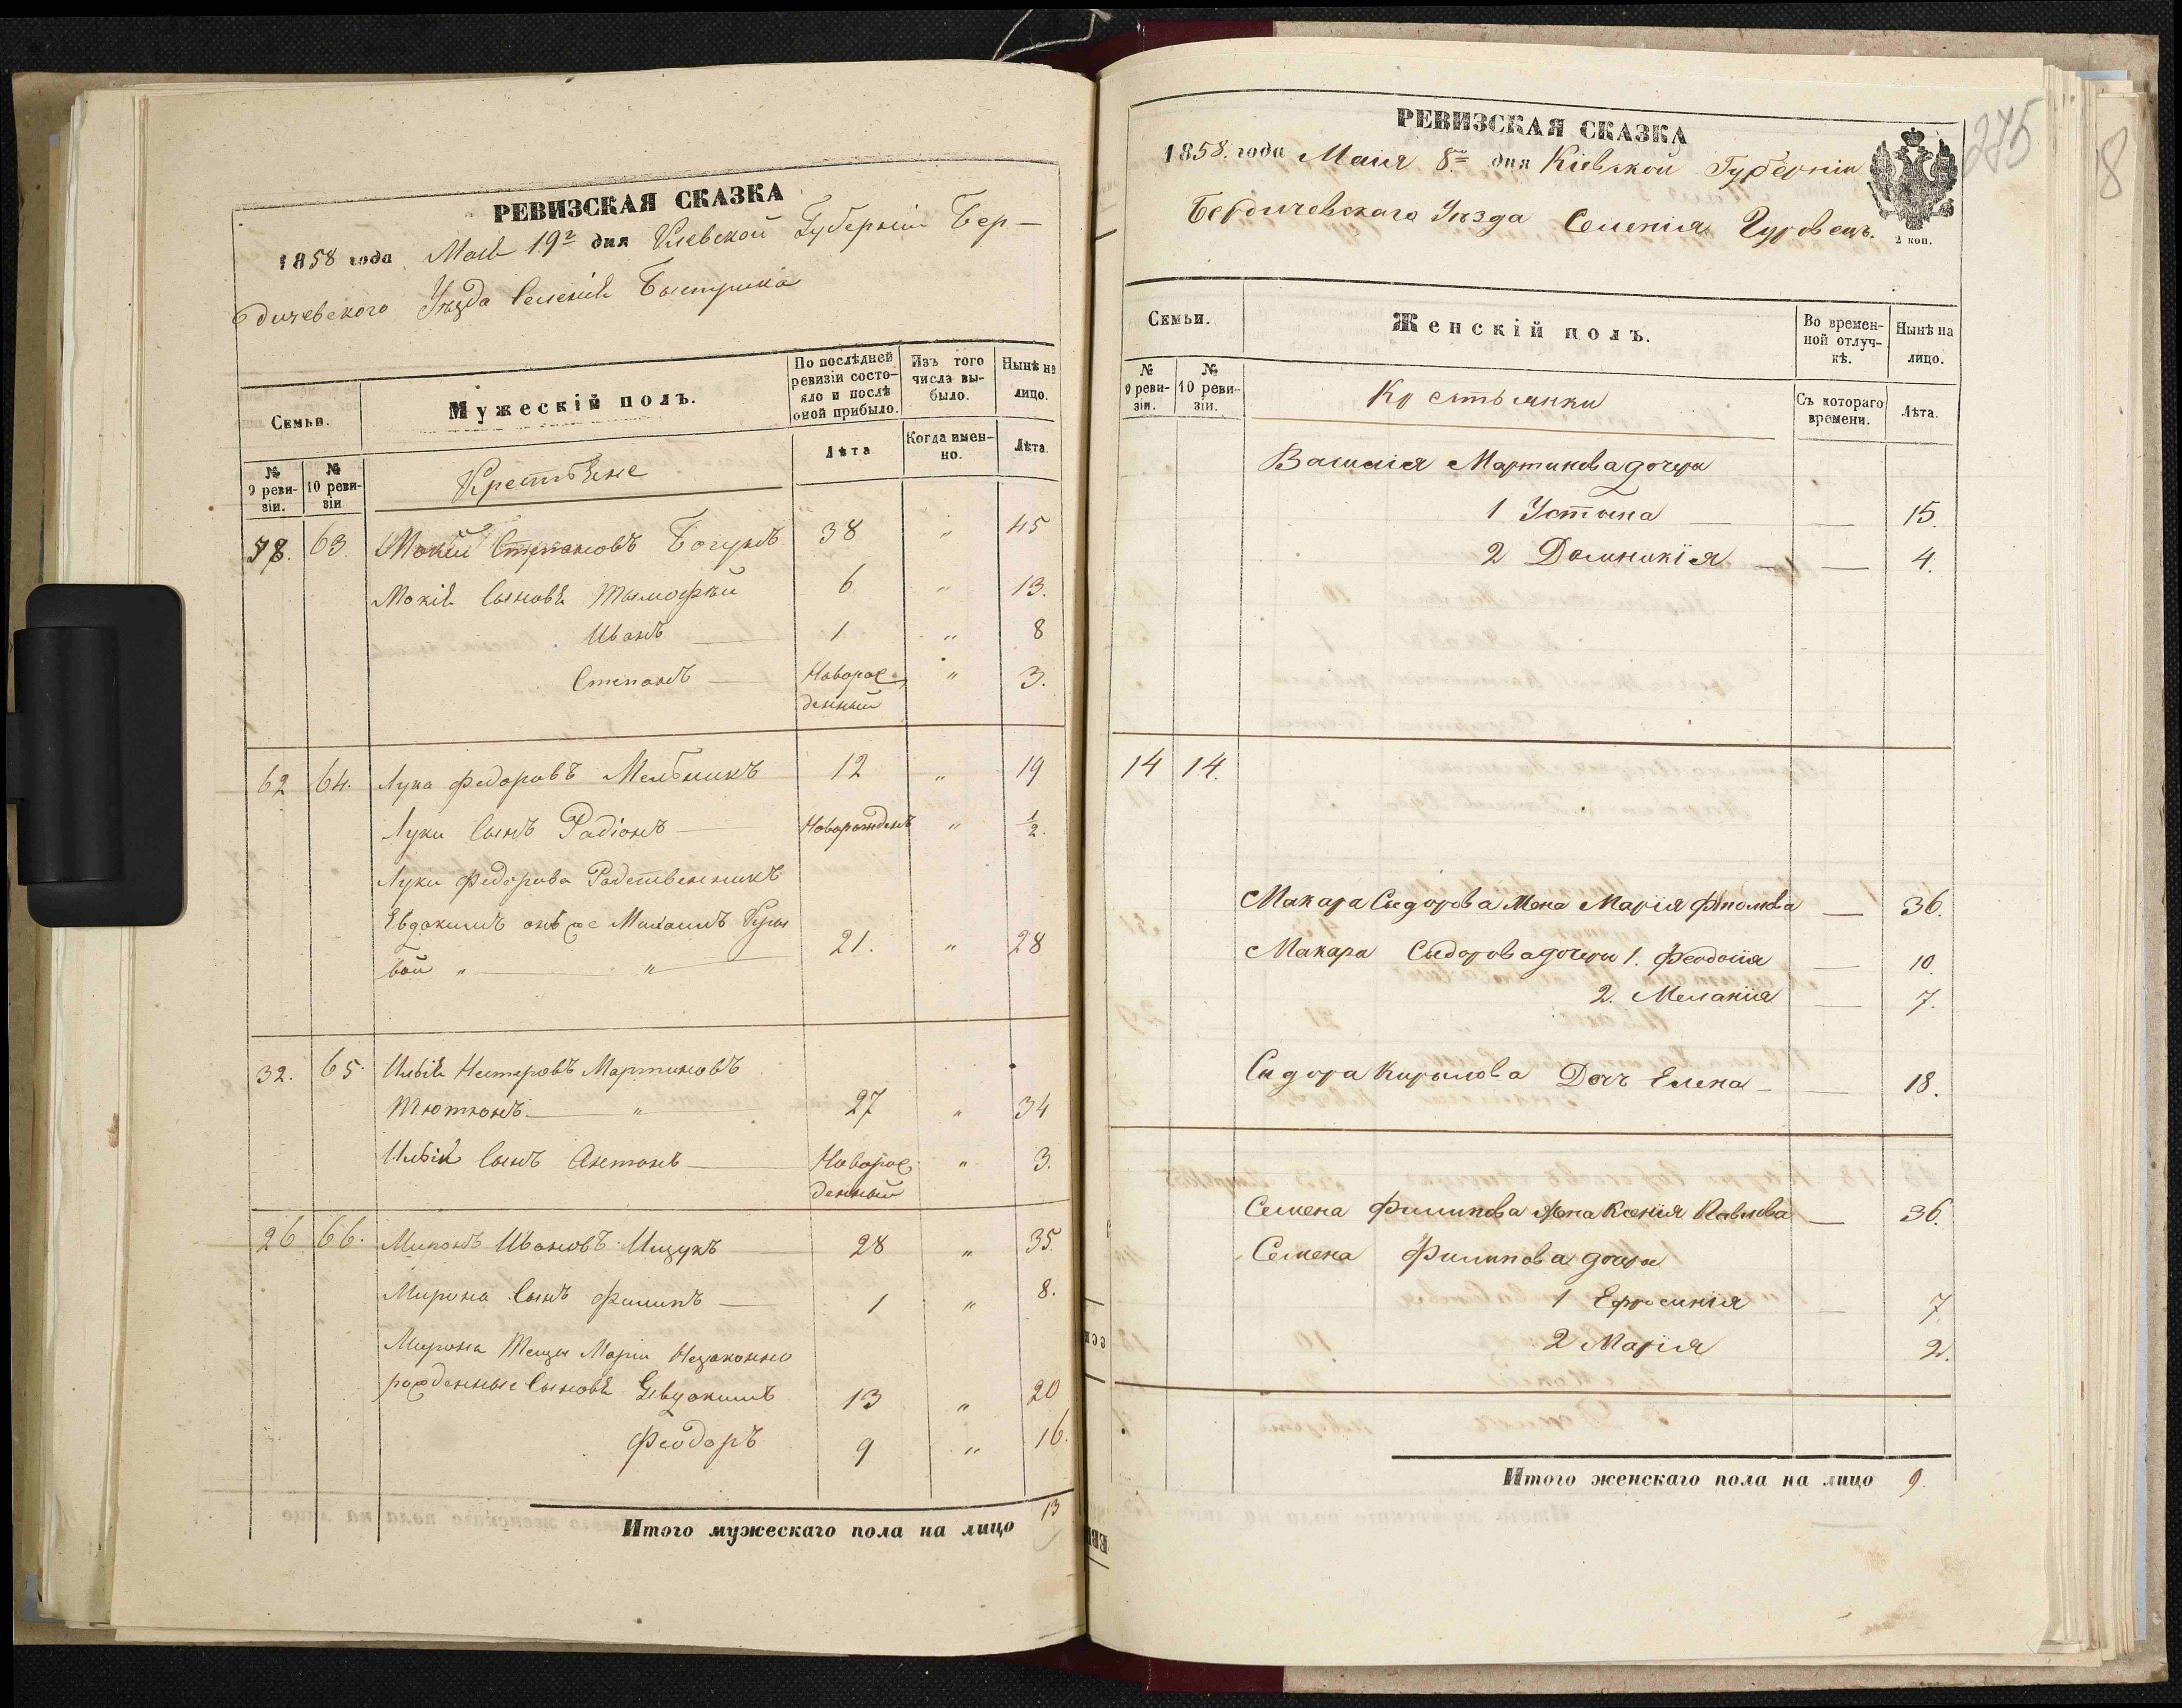 РЕВИЗСКАЯ СКАЗКА
1858 года Маія 19г дня Кіевской Губерніи Бер-
дичевского Уѣзда Селенія Быстрика
Семьи.
Мужескій полъ.
По послѣдней ревизіи состояло и послѣ оной прибыло.
Изъ того числа выбыло.
Нынѣ на лицо.
№ 9 ревизіи.
№ 10 ревизіи
Крестьяне
Лѣта
Когда именно.
Лѣта.
78. 63. Мокій Степановъ Богунъ 38 " 45
Мокія Сыновя Тымофѣй 6 " 13.
Иванъ 1 " 8
Степанъ Новорож " 3.
денный
62 64. Лука Федоровъ Мельникъ 12 " 19
Луки Сынъ Радіонъ Новорожденъ " 1/2.
Луки Федорова Родственникъ
Евдокимъ онъ же Михаилъ
вой " " 21. " 28
32. 65. Илья Нестеровъ Мартиновъ
Тютюнъ " 27 " 34
Ильи Сынъ Антонъ Новорож " 3.
денный
26 66. Миронъ Ивановъ Ищукъ 28 " 35.
Мирона Сынъ Филипъ 1 " 8.
Мирона Тещи Маріи Незаконно
рожденные Сыновя Евдокимъ 13 " 20
Феодоръ 9 " 16.
Итого мужескаго пола на лицо 13
РЕВИЗСКАЯ СКАЗКА
1858. года Маія 8го дня Кіевской Губерніи
Бердичевскаго Уѣзда Селенія Гуровецъ.
2 коп.
275
8
Семьи.
Женскій полъ.
Во временной отлучкѣ.
Нынѣ на лицо.
№ 9 ревизіи.
№ 10 ревизіи.
Крестьянки
Съ котораго времени.
Лѣта.
Василія Мартинова дочери
1 Устына — 15.
2 Домникія — 4.
14 14.
Макара Сыдорова Жена Марія — 36.
Макара Сыдорова дочери 1. Феодосія — 10
2. Меланія — 7.
Сидора Кирылова Дочъ Елена — 18.
Семена Филипова Жена Ксенія Павлова — 36.
Семена Филипова дочери
1 Ефросинія — 7
2 Марія 2.
Итого женскаго пола на лицо 9.